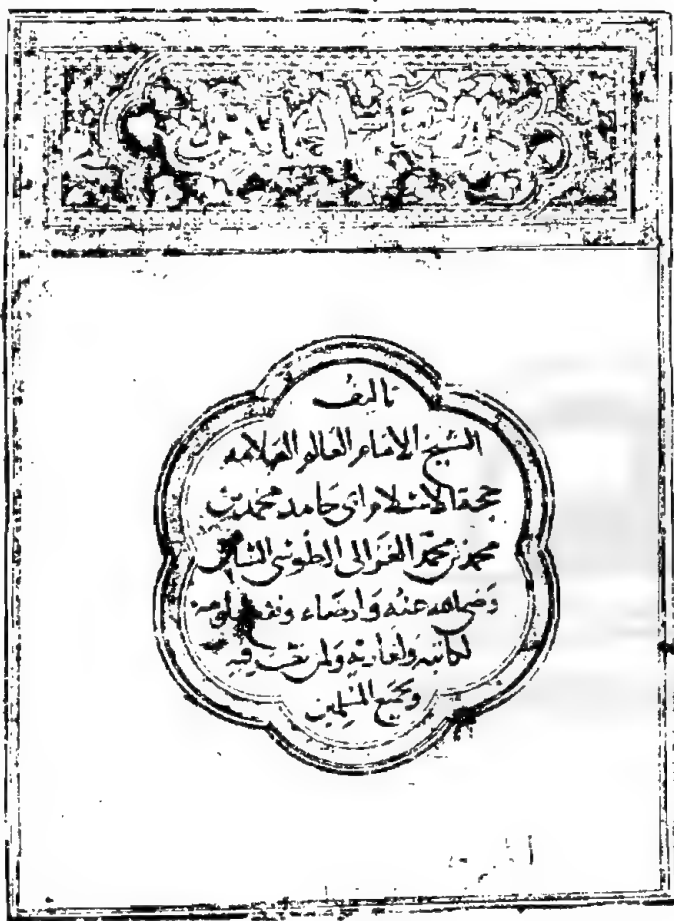 تاليف
الشيخ الامام العالم العلامه
حجة الاسلام ابى حامد محمد بن
محمد بن محمد الغزالى الطوسى الشافعى
رضى الله عنه وارضاه ونفع بعلومه
لكاتبه ولقاريه ولمن نظر فيه
ولجميع المسلمين